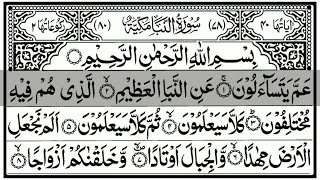 اٰیَاتُهَا ۴۰ (۷۸) سُوْرَةُ النَّبَاِ مَكِّیَّةٌ (۸۰) رُكُوْعَاتُهَا ۲
بِسْمِ اللهِ الرَّحْمٰنِ الرَّحِیْمِ
عَمَّ یَتَسَآءَلُوْنَ ۱ عَنِ النَّبَاِ الْعَظِیْمِ ۲ الَّذِیْ هُمْ فِیْهِ
مُخْتَلِفُوْنَ ۳ كَلَّا سَیَعْلَمُوْنَ ۴ ثُمَّ كَلَّا سَیَعْلَمُوْنَ ۵ اَلَمْ نَجْعَلِ
الْاَرْضَ مِهٰدًا ۶ وَّالْجِبَالَ اَوْتَادًا ۷ وَّخَلَقْنٰكُمْ اَزْوَاجًا ۸